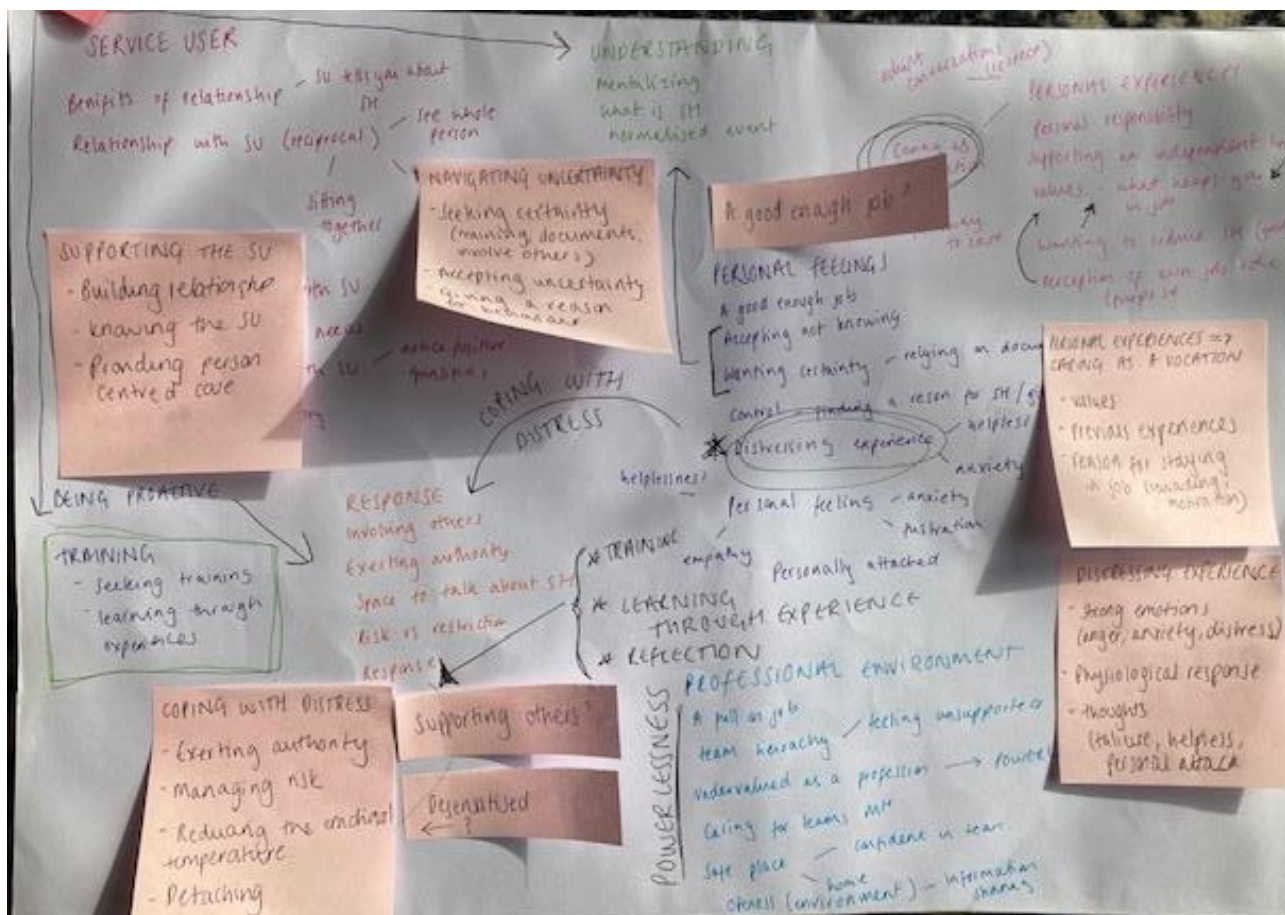 SERVICE USER
Benifits of relationship - SU tells you about SH
Relationship with SU (reciprocal) - see whole person
sitting together
UNDERSTANDING
mentalizing
what is SH
normalised event
adult conversations (respect)
PERSONAL EXPERIENCES
Personal responsibility
supporting an independent
values - what keeps you in job
wanting to reduce SH
Perception of own job role
purpose
caring as
A good enough job?
to care
NAVIGATING UNCERTAINTY
- Seeking certainty
(training, documents,
involve others)
- Accepting uncertainty
giving a reason
for behaviour
SUPPORTING THE SU
- Building relationship
- Knowing the SU
- Providing person
centred care
SU
needs
SU - notice positive
qualities
PERSONAL FEELINGS
A good enough job
Accepting not knowing
Wanting certainty - relying on docu
Control - finding a reason for SH /
Distressing experience - helpless
anxiety
helplessness?
Personal feeling - anxiety
frustration
empathy
Personally attached
COPING WITH
DISTRESS
PERSONAL EXPERIENCES =>
CARING AS A VOCATION
- values
- Previous experiences
- reason for staying
in job (rewarding,
motivation)
BEING PROACTIVE
TRAINING
- seeking training
- learning through
experiences
RESPONSE
Involving others
Exerting authority
Space to talk about SH
Risk vs restriction
Response
* TRAINING
* LEARNING
THROUGH EXPERIENCE
* REFLECTION
DISTRESSING EXPERIENCE
- strong emotions
(anger, anxiety, distress)
- Physiological response
- thoughts
(failure, helpless,
personal attack
COPING WITH DISTRESS
- Exerting authority
- Managing risk
- Reducing the emotional
temperature
- Detaching
Supporting others?
Desensitised
?
POWERLESSNESS
PROFESSIONAL ENVIRONMENT
A pull on job
team heirachy - feeling unsupported
undervalued as a profession → power
Caring for teams MH
Safe place - confident in team
home
(environment) - information
sharing